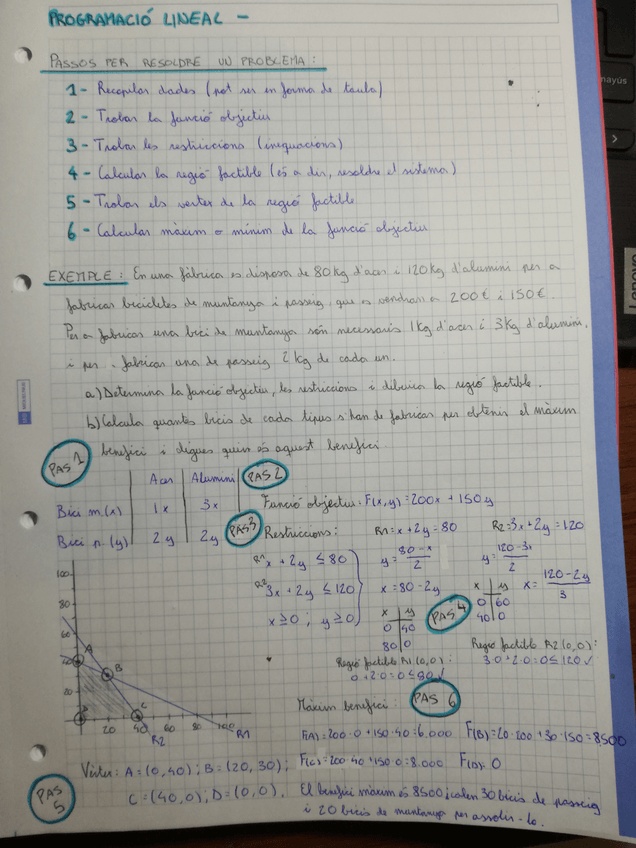 PROGRAMACIÓ LINEAL -
PASSOS PER RESOLDRE UN PROBLEMA:
1 - Recopilar dades (pot ser en forma de taula)
2 - Trobar la funció objectiu
3 - Trobar les restriccions (inequacions)
4 - Calcular la regió factible (és a dir, resoldre el sistema)
5 - Trobar els vertex de la regió factible
6 - Calcular màxim o mínim de la funció objectiu
EXEMPLE: En una fàbrica es disposa de 80 kg d'acer i 120 kg d'alumini per a
fabricar bicicletes de muntanya i passeig, que es vendran a 200€ i 150€.
Per a fabricar una bici de muntanya són necessaris 1kg d'acer i 3kg d'alumini,
i per a fabricar una de passeig 2 kg de cada un.
a) Determina la funció objectiu, les restriccions i dibuixa la regió factible.
b) Calcula quantes bicis de cada tipus s'han de fabricar per obtenir el màxim
benefici i digues quin és aquest benefici.
PAS 1
Acer Alumini
Bici m.(x) 1x 3x
Bici p.(y) 2y 2y
PAS 2
Funció objectiu: F(x,y)=200x+150y
PAS 3
Restriccions:
R1 x+2y ≤ 80
R2 3x+2y ≤ 120
x≥0 ; y≥0
R1=x+2y=80
y= 80-x / 2
x=80-2y
x y
0 40
80 0
R2=3x+2y=120
y= 120-3x / 2
x= 120-2y / 3
x y
0 60
40 0
PAS 4
Regió factible R1(0,0):
0+2·0=0≤80✓
Regió factible R2(0,0):
3·0+2·0=0≤120✓
100
80
60
40
20
A
B
C
D
20 40 100
R2 R1
PAS 6
Màxim benefici:
F(A)=200·0+150·40=6.000 F(B)=20·200+30·150=8500
F(C)=200·40+150·0=8.000 F(D)=0
PAS 5
Vèrtex: A=(0,40); B=(20,30);
C=(40,0); D=(0,0).
El benefici màxim és 8500 i calen 30 bicis de passeig
i 20 bicis de muntanya per assolir-lo.
mayús
Lenovo